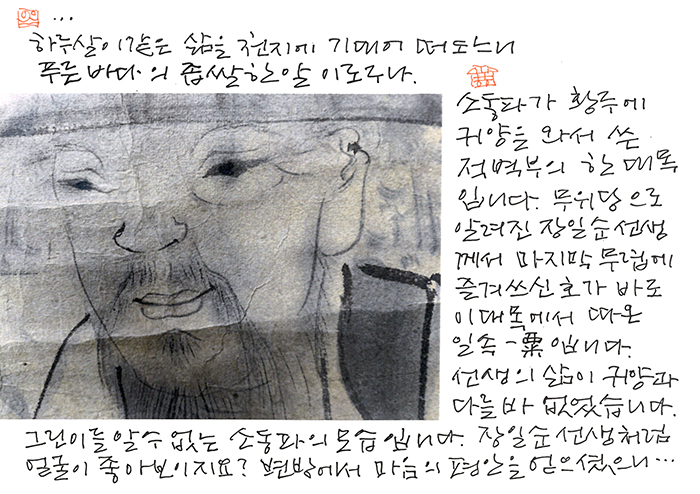 ...
하루살이같은 삶을 천지에 기대어 떠도느니
푸른 바다의 좁쌀한알 이로구나.
소동파가 황주에
귀양을 와서 쓴
적벽부의 한 대목
입니다. 무위당으로
알려진 장일순선생
께서 마지막 무렵에
즐겨쓰신 호가 바로
이대목에서 따온
일속 一粟 입니다.
선생의 삶이 귀양과
다를바 없었습니다.
그린이를 알수 없는 소동파의 모습입니다. 장일순선생처럼
얼굴이 좋아보이지요? 변방에서 마음의 평안을 얻으셨으니...